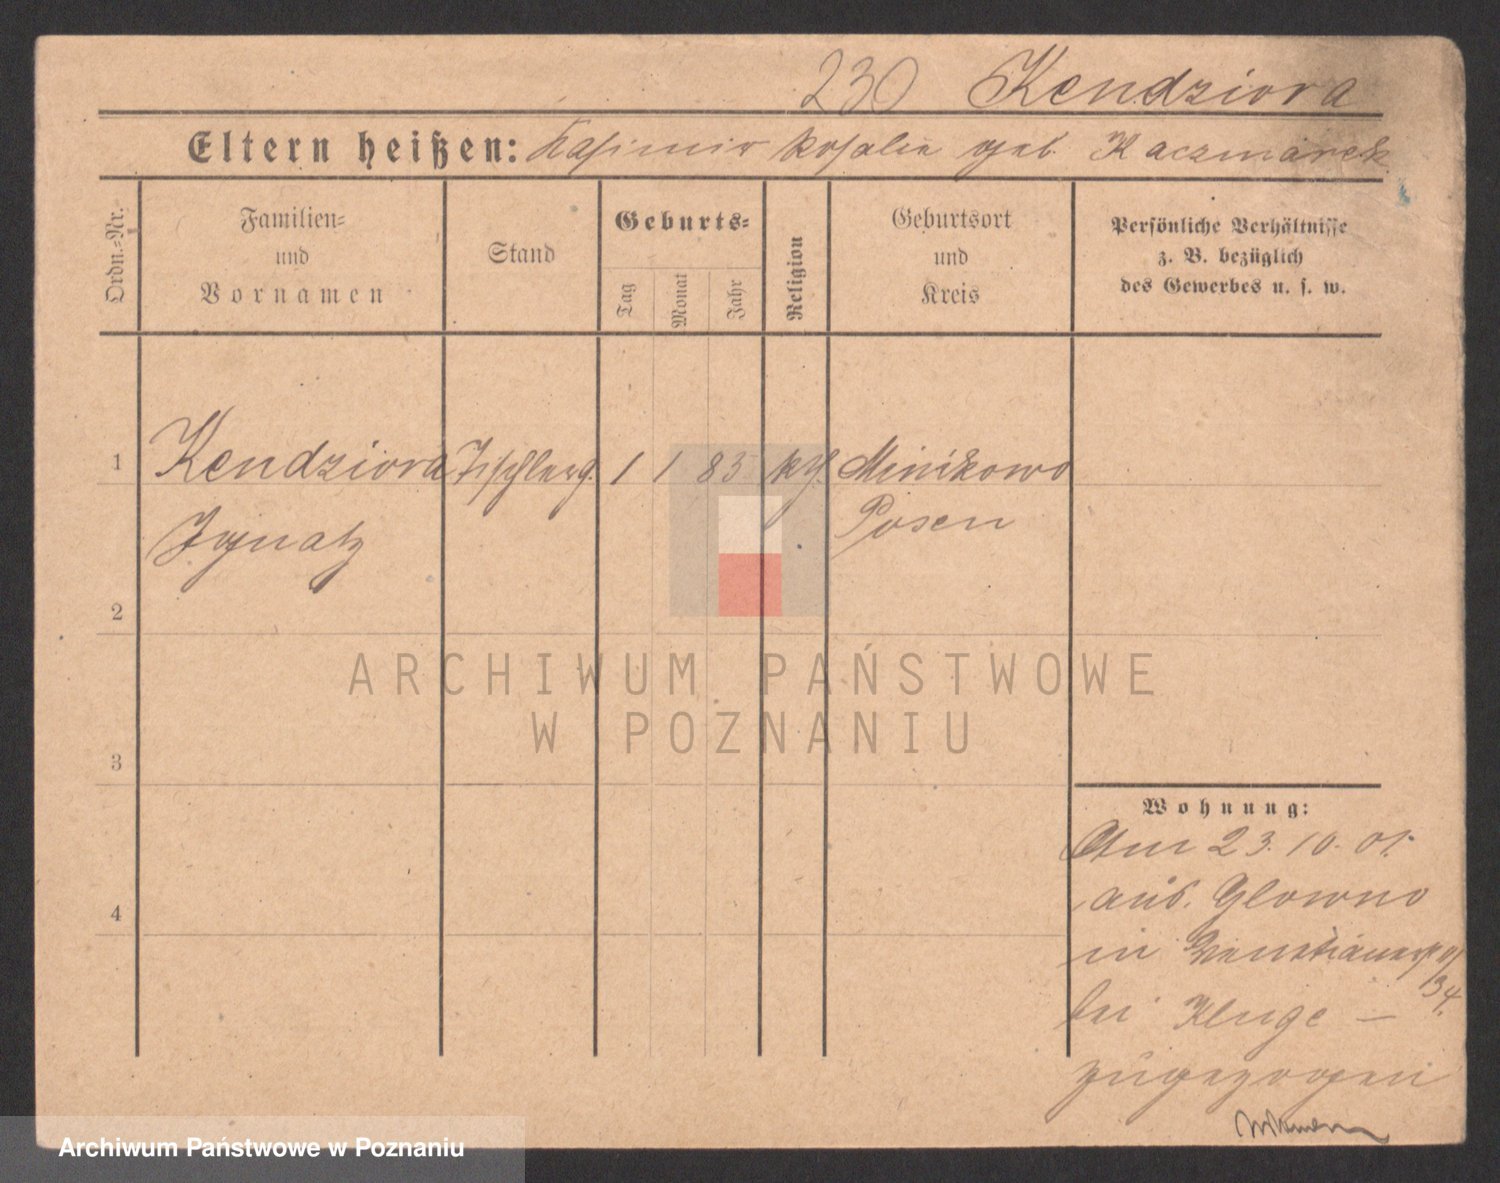 230 Kendziora
Eltern heißen: Kasimir Rosalie geb. Kaczmarek
Ordn.=Nr.
Familien=
und
Vornamen
Stand
Geburts=
Tag
Monat
Jahr
Religion
Geburtsort
und
Kreis
Persönliche Verhältnisse
z. B. bezüglich
des Gewerbes u. s. w.
1 Kendziora Tischlerg. 1 1 83 kth. Minikowo
Ignatz Posen
2
3
4
ARCHIWUM PAŃSTWOWE
W POZNANIU
Wohnung:
Am 23. 10. 01.
aus. Glowno
in Venetianerstr
bei Kluge —
zugezogen
Archiwum Państwowe w Poznaniu